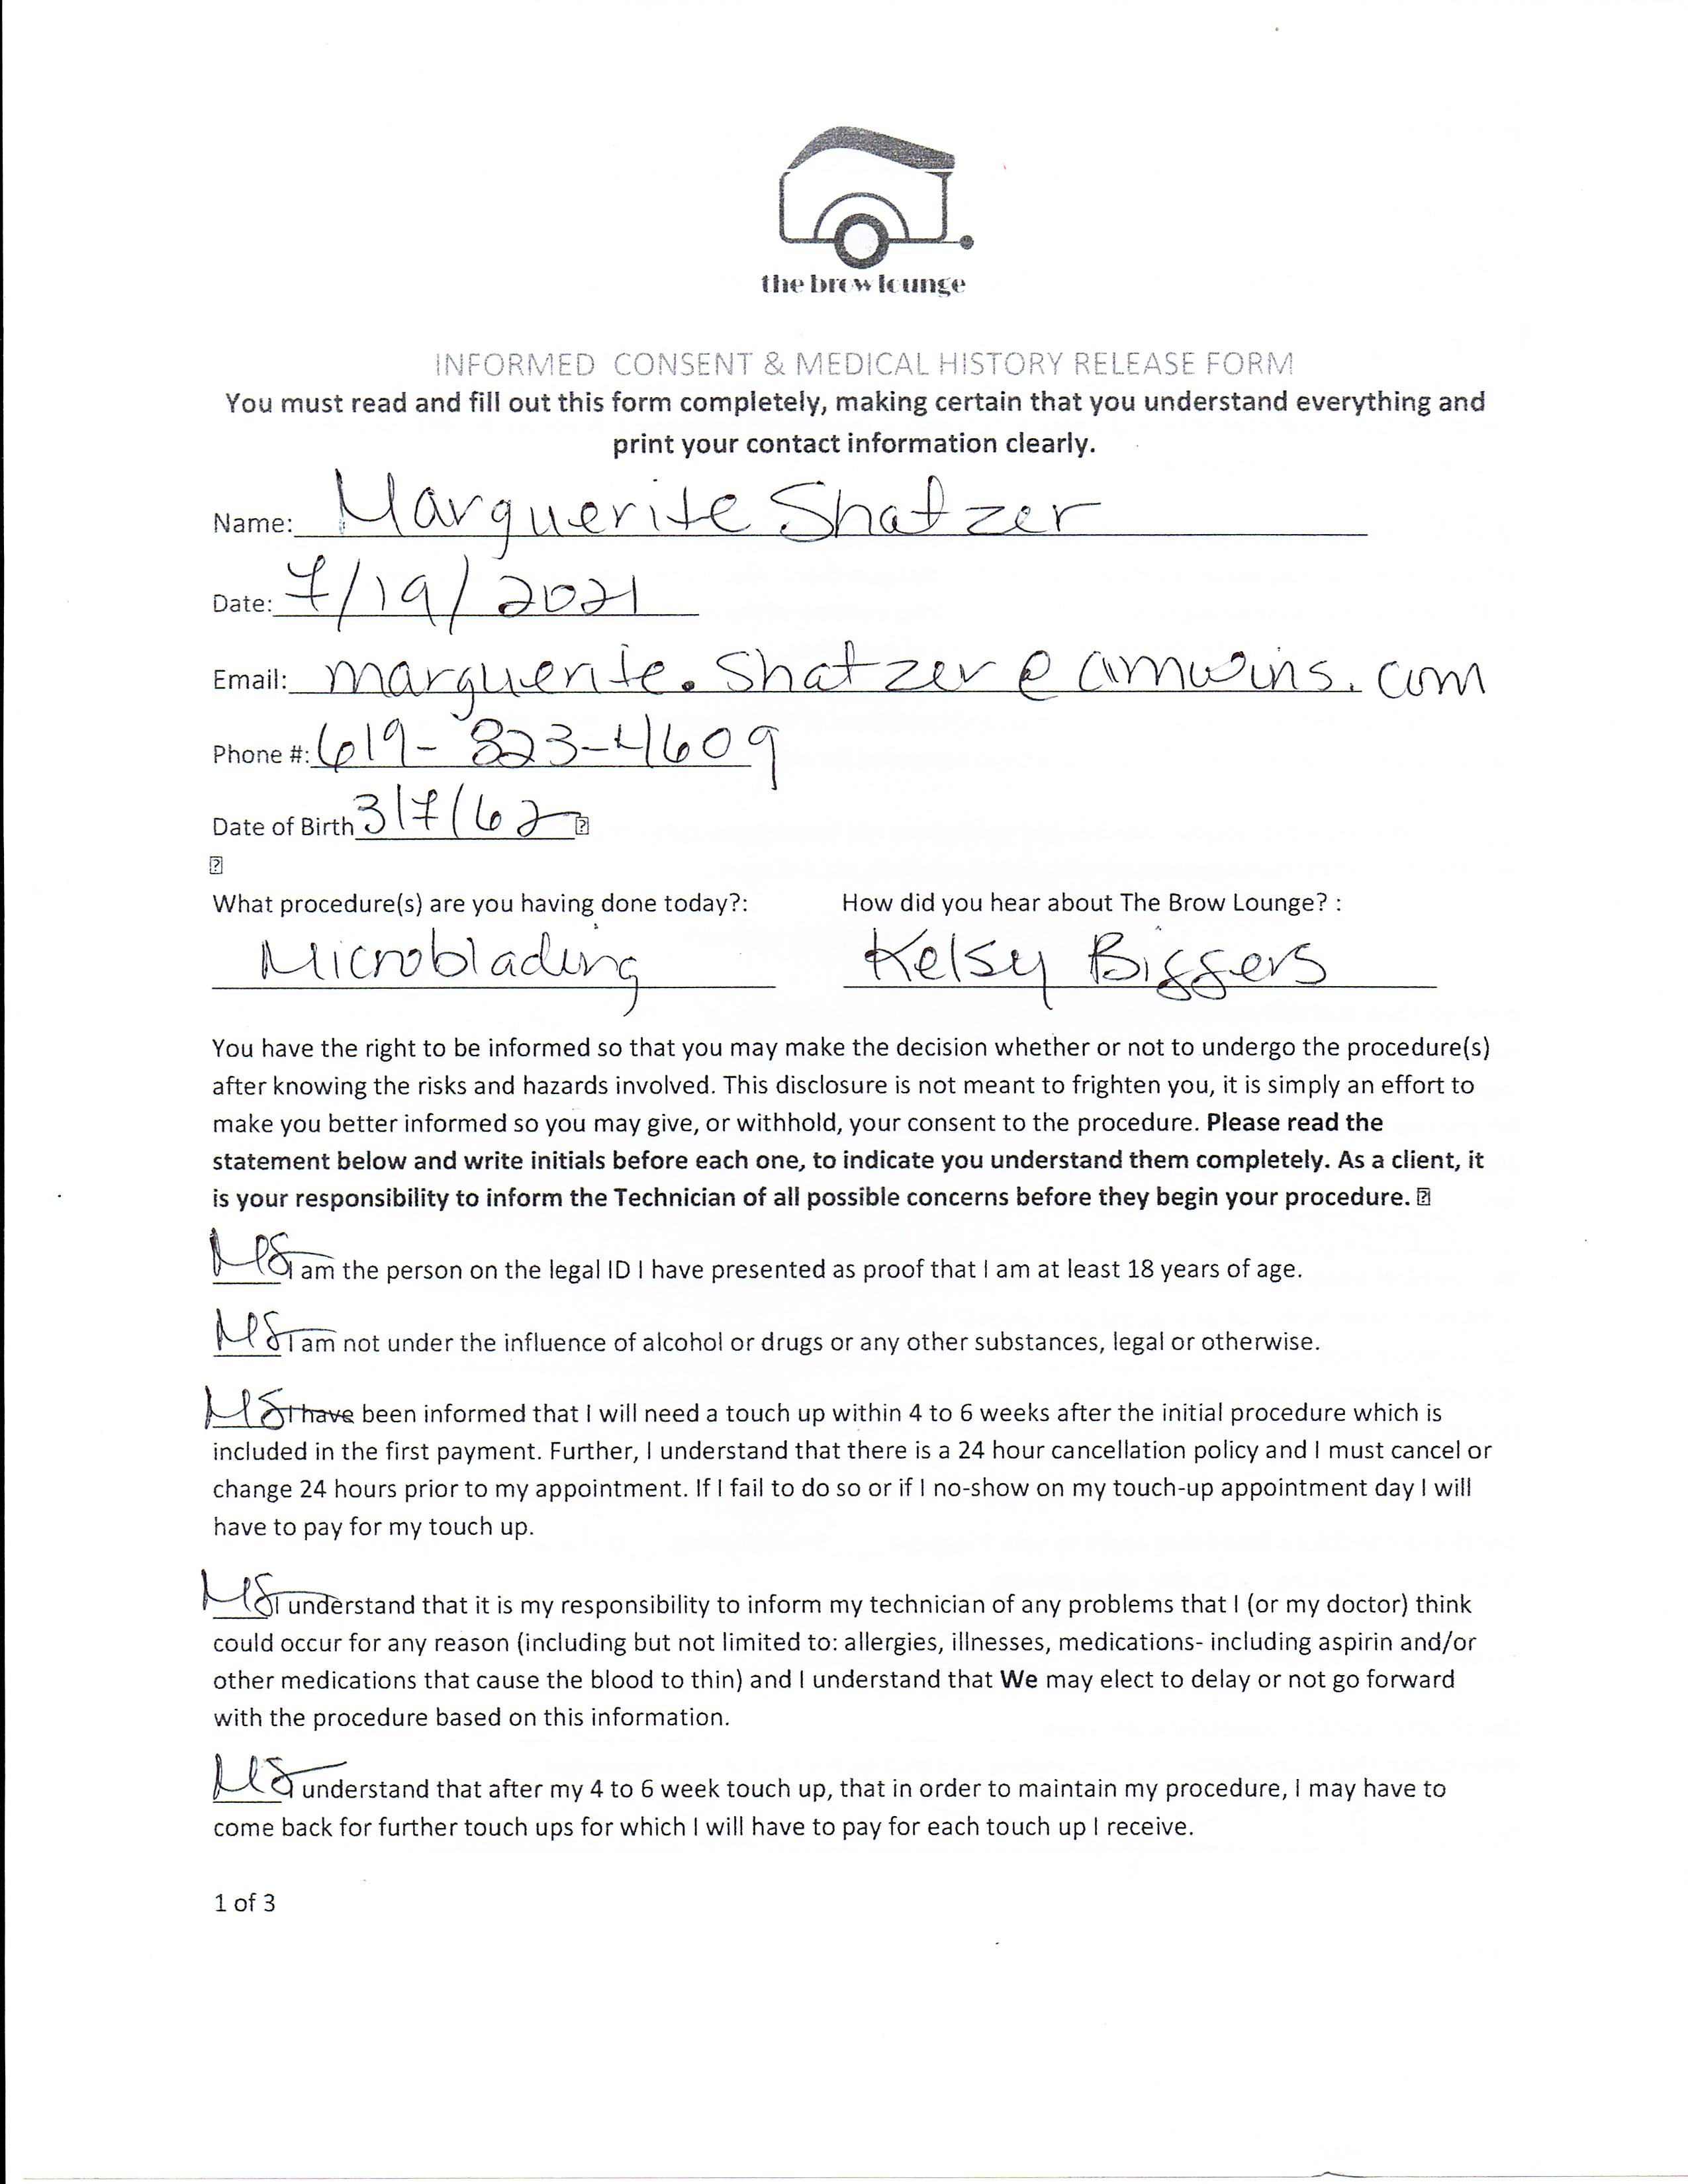 the brow lounge
INFORMED CONSENT & MEDICAL HISTORY RELEASE FORM
You must read and fill out this form completely, making certain that you understand everything and
print your contact information clearly.
Name: Marguerite Shatzer
Date: 7/19/2021
Email: marguerite.shatzer@amwins.com
Phone #: 619-823-4609
Date of Birth 3/7/62
What procedure(s) are you having done today?: How did you hear about The Brow Lounge? :
Microblading Kelsy Biggers
You have the right to be informed so that you may make the decision whether or not to undergo the procedure(s)
after knowing the risks and hazards involved. This disclosure is not meant to frighten you, it is simply an effort to
make you better informed so you may give, or withhold, your consent to the procedure. Please read the
statement below and write initials before each one, to indicate you understand them completely. As a client, it
is your responsibility to inform the Technician of all possible concerns before they begin your procedure.
MS I am the person on the legal ID I have presented as proof that I am at least 18 years of age.
MS I am not under the influence of alcohol or drugs or any other substances, legal or otherwise.
MS I have been informed that I will need a touch up within 4 to 6 weeks after the initial procedure which is
included in the first payment. Further, I understand that there is a 24 hour cancellation policy and I must cancel or
change 24 hours prior to my appointment. If I fail to do so or if I no-show on my touch-up appointment day I will
have to pay for my touch up.
MS I understand that it is my responsibility to inform my technician of any problems that I (or my doctor) think
could occur for any reason (including but not limited to: allergies, illnesses, medications- including aspirin and/or
other medications that cause the blood to thin) and I understand that We may elect to delay or not go forward
with the procedure based on this information.
MS I understand that after my 4 to 6 week touch up, that in order to maintain my procedure, I may have to
come back for further touch ups for which I will have to pay for each touch up I receive.
1 of 3